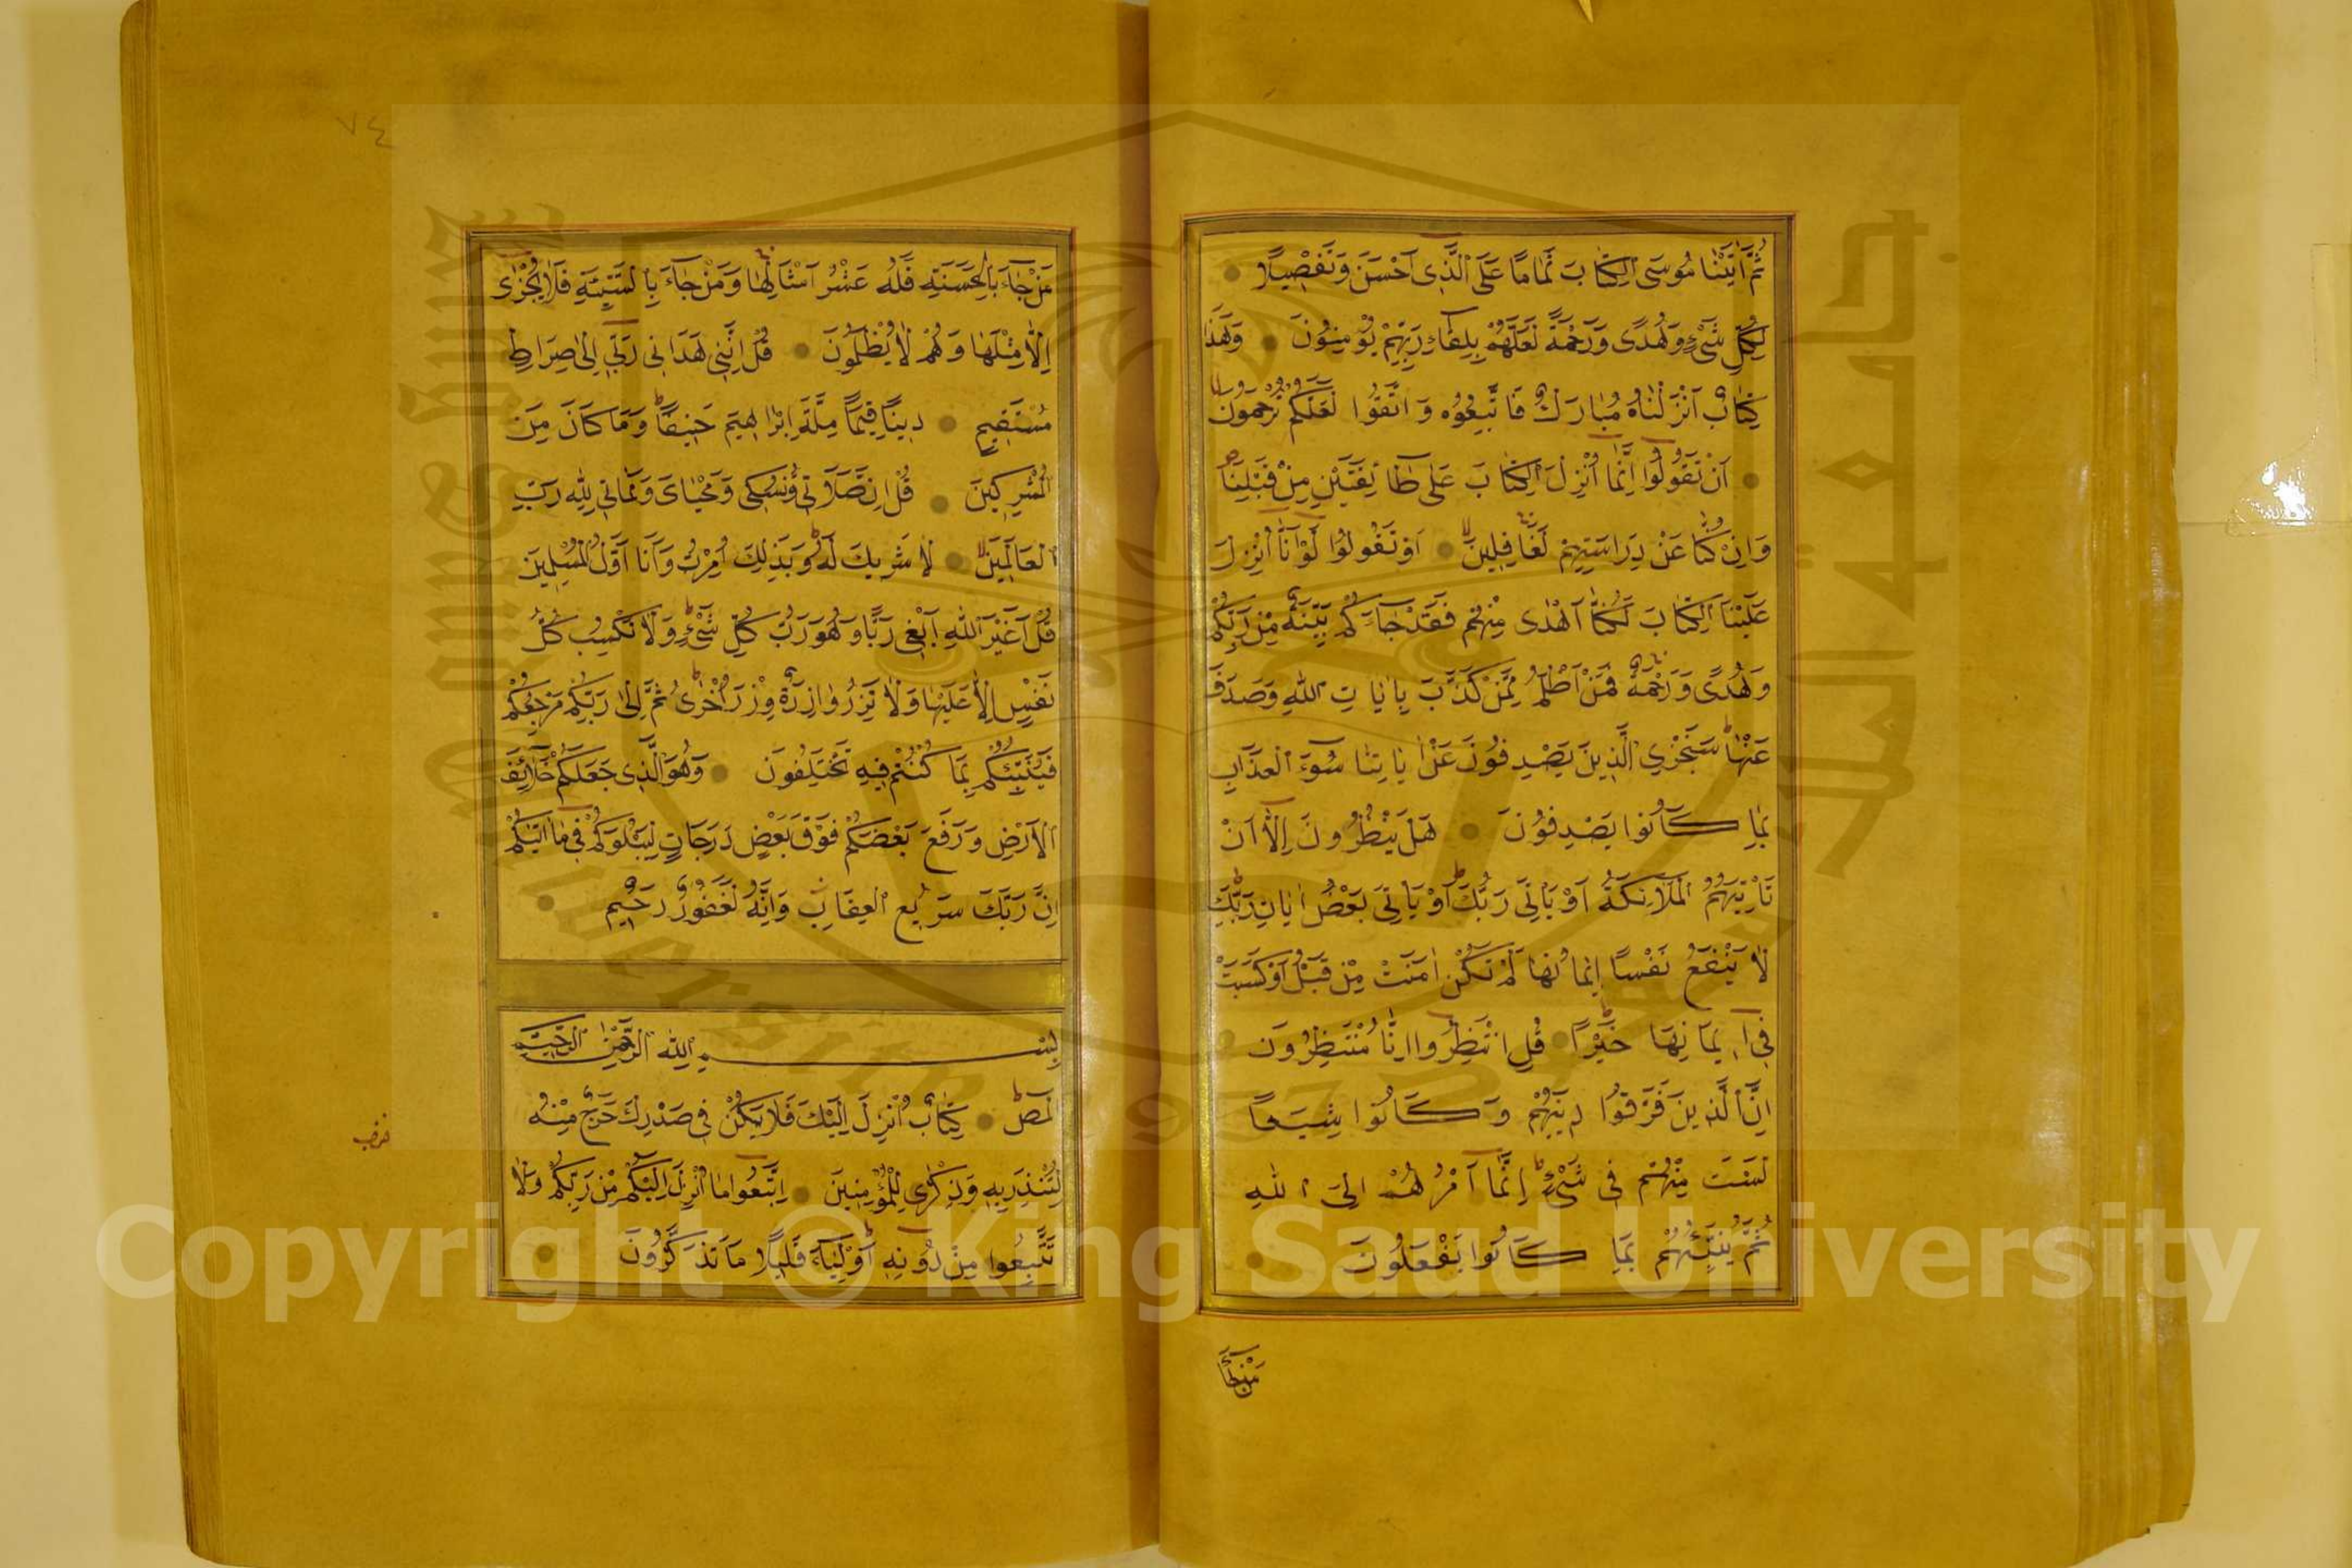 ثُمَّ اٰتَيْنَا مُوسَى الْكِتَابَ تَمَامًا عَلَى الَّذِى اَحْسَنَ وَتَفْصِيلًا
لِكُلِّ شَىْءٍ وَهُدًى وَرَحْمَةً لَعَلَّهُمْ بِلِقَاءِ رَبِّهِمْ يُؤْمِنُونَ وَهٰذَا
كِتَابٌ اَنْزَلْنَاهُ مُبَارَكٌ فَاتَّبِعُوهُ وَاتَّقُوا لَعَلَّكُمْ تُرْحَمُونَ
اَنْ تَقُولُوا اِنَّمَا اُنْزِلَ الْكِتَابَ عَلٰى طَائِفَتَيْنِ مِنْ قَبْلِنَا
وَاِنْ كُنَّا عَنْ دِرَاسَتِهِمْ لَغَافِلِينَ اَوْ تَقُولُوا لَوْ اَنَّا اُنْزِلَ
عَلَيْنَا الْكِتَابَ لَكُنَّا اَهْدٰى مِنْهُمْ فَقَدْ جَاءَكُمْ بَيِّنَةٌ مِنْ رَبِّكُمْ
وَهُدًى وَرَحْمَةٌ فَمَنْ اَظْلَمُ مِمَّنْ كَذَّبَ بِاٰيَاتِ اللهِ وَصَدَفَ
عَنْهَا سَنَجْزِي الَّذِينَ يَصْدِفُونَ عَنْ اٰيَاتِنَا سُوءَ الْعَذَابِ
بِمَا كَانُوا يَصْدِفُونَ هَلْ يَنْظُرُونَ اِلَّا اَنْ
تَاْتِيَهُمُ الْمَلَائِكَةُ اَوْ يَاْتِىَ رَبُّكَ اَوْ يَاْتِىَ بَعْضُ اٰيَاتِ رَبِّكَ
لَا يَنْفَعُ نَفْسًا اِيمَانُهَا لَمْ تَكُنْ اٰمَنَتْ مِنْ قَبْلُ اَوْ كَسَبَتْ
فِى اِيمَانِهَا خَيْرًا قُلِ انْتَظِرُوا اِنَّا مُنْتَظِرُونَ
اِنَّ الَّذِينَ فَرَّقُوا دِينَهُمْ وَكَانُوا شِيَعًا
لَسْتَ مِنْهُمْ فِى شَىْءٍ اِنَّمَا اَمْرُهُمْ اِلَى اللهِ
ثُمَّ يُنَبِّئُهُمْ بِمَا كَانُوا يَفْعَلُونَ
مَنْ جَاءَ
٧٤
مَنْ جَاءَ بِالْحَسَنَةِ فَلَهُ عَشْرُ اَمْثَالِهَا وَمَنْ جَاءَ بِالسَّيِّئَةِ فَلَا يُجْزٰى
اِلَّا مِثْلَهَا وَهُمْ لَا يُظْلَمُونَ قُلْ اِنَّنِى هَدَانِى رَبِّى اِلٰى صِرَاطٍ
مُسْتَقِيمٍ دِينًا قِيَمًا مِلَّةَ اِبْرَاهِيمَ حَنِيفًا وَمَا كَانَ مِنَ
الْمُشْرِكِينَ قُلْ اِنَّ صَلَاتِى وَنُسُكِى وَمَحْيَاىَ وَمَمَاتِى لِلّٰهِ رَبِّ
الْعَالَمِينَ لَا شَرِيكَ لَهُ وَبِذٰلِكَ اُمِرْتُ وَاَنَا اَوَّلُ الْمُسْلِمِينَ
قُلْ اَغَيْرَ اللهِ اَبْغِى رَبًّا وَهُوَ رَبُّ كُلِّ شَىْءٍ وَلَا تَكْسِبُ كُلُّ
نَفْسٍ اِلَّا عَلَيْهَا وَلَا تَزِرُ وَازِرَةٌ وِزْرَ اُخْرٰى ثُمَّ اِلٰى رَبِّكُمْ مَرْجِعُكُمْ
فَيُنَبِّئُكُمْ بِمَا كُنْتُمْ فِيهِ تَخْتَلِفُونَ وَهُوَ الَّذِى جَعَلَكُمْ خَلَائِفَ
الْاَرْضِ وَرَفَعَ بَعْضَكُمْ فَوْقَ بَعْضٍ دَرَجَاتٍ لِيَبْلُوَكُمْ فِى مَا اٰتٰيكُمْ
اِنَّ رَبَّكَ سَرِيعُ الْعِقَابِ وَاِنَّهُ لَغَفُورٌ رَحِيمٌ
بِسْمِ اللهِ الرَّحْمٰنِ الرَّحِيمِ
الٓمٓصٓ كِتَابٌ اُنْزِلَ اِلَيْكَ فَلَا يَكُنْ فِى صَدْرِكَ حَرَجٌ مِنْهُ
لِتُنْذِرَ بِهِ وَذِكْرٰى لِلْمُؤْمِنِينَ اِتَّبِعُوا مَا اُنْزِلَ اِلَيْكُمْ مِنْ رَبِّكُمْ وَلَا
تَتَّبِعُوا مِنْ دُونِهِ اَوْلِيَاءَ قَلِيلًا مَا تَذَكَّرُونَ
King Saud University
1957
Copyright © King Saud University